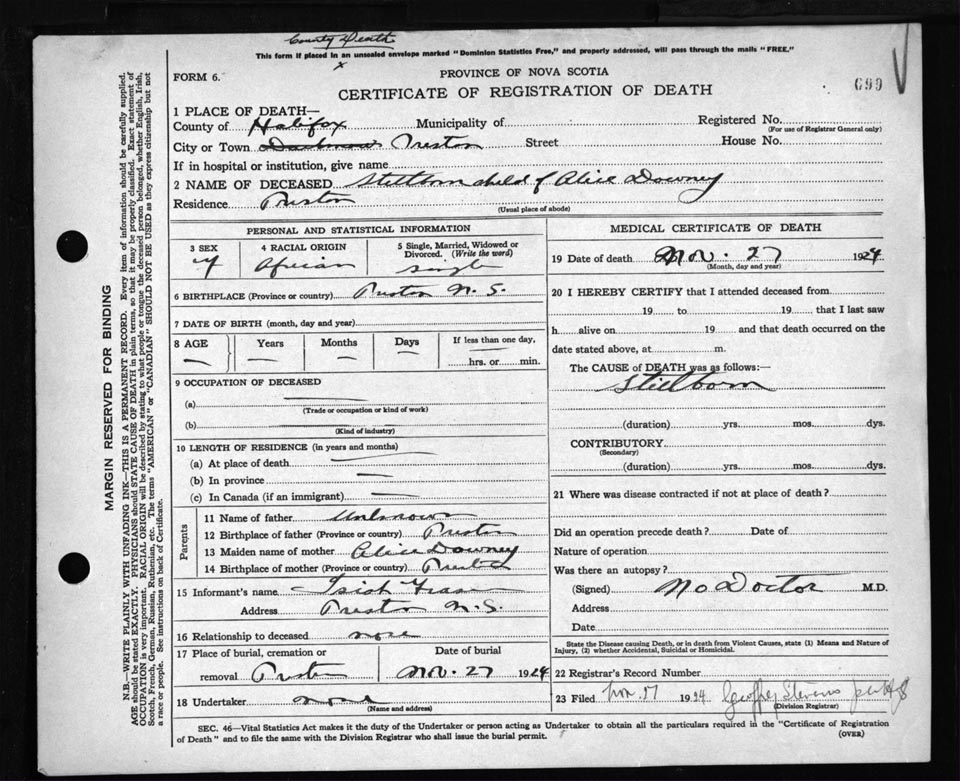 County Death
This form if placed in an unsealed envelope marked "Dominion Statistics Free," and properly addressed, will pass through the mails "FREE."
x
FORM 6.
PROVINCE OF NOVA SCOTIA
699
CERTIFICATE OF REGISTRATION OF DEATH
1 PLACE OF DEATH—
County of Halifax Municipality of Registered No.
(For use of Registrar General only)
City or Town Preston Street House No.
If in hospital or institution, give name
2 NAME OF DECEASED Stillborn child of Alice Downey
Residence Preston
(Usual place of abode)
PERSONAL AND STATISTICAL INFORMATION
3 SEX
4 RACIAL ORIGIN African
5 Single, Married, Widowed or Divorced. (Write the word) single
6 BIRTHPLACE (Province or country) Preston N.S.
7 DATE OF BIRTH (month, day and year)
8 AGE Years Months Days If less than one day,
hrs. or min.
9 OCCUPATION OF DECEASED
(a)
(Trade or occupation or kind of work)
(b)
(Kind of industry)
10 LENGTH OF RESIDENCE (in years and months)
(a) At place of death
(b) In province
(c) In Canada (if an immigrant)
Parents
11 Name of father Unknown
12 Birthplace of father (Province or country) Preston
13 Maiden name of mother Alice Downey
14 Birthplace of mother (Province or country) Preston
15 Informant's name
Address Preston N.S.
16 Relationship to deceased none
17 Place of burial, cremation or Date of burial
removal Preston Nov. 27 1924
18 Undertaker none
(Name and address)
MEDICAL CERTIFICATE OF DEATH
19 Date of death Nov. 27 1924
(Month, day and year)
20 I HEREBY CERTIFY that I attended deceased from
19 to 19 that I last saw
h alive on 19 and that death occurred on the
date stated above, at m.
The CAUSE of DEATH was as follows:—
Stillborn
(duration) yrs. mos. dys.
CONTRIBUTORY
(Secondary)
(duration) yrs. mos. dys.
21 Where was disease contracted if not at place of death?
Did an operation precede death? Date of
Nature of operation
Was there an autopsy?
(Signed) No Doctor M.D.
Address
Date
State the Disease causing Death, or in death from Violent Causes, state (1) Means and Nature of Injury, (2) whether Accidental, Suicidal or Homicidal.
22 Registrar's Record Number
23 Filed 1924 Geoffrey Stevens
(Division Registrar)
SEC. 46—Vital Statistics Act makes it the duty of the Undertaker or person acting as Undertaker to obtain all the particulars required in the "Certificate of Registration
of Death" and to file the same with the Division Registrar who shall issue the burial permit.
(OVER)
MARGIN RESERVED FOR BINDING
N.B.—WRITE PLAINLY WITH UNFADING INK—THIS IS A PERMANENT RECORD. Every item of information should be carefully supplied.
AGE should be stated EXACTLY. PHYSICIANS should STATE CAUSE OF DEATH in plain terms, so that it may be properly classified. Exact statement of
OCCUPATION is very important. RACIAL ORIGIN will be described by stating to what people or tongue the deceased person belonged, whether English, Irish,
Scotch, French, German, Russian, Ruthenian, etc. The terms "AMERICAN" or "CANADIAN" SHOULD NOT BE USED as they express citizenship but not
a race or people. See instructions on back of Certificate.